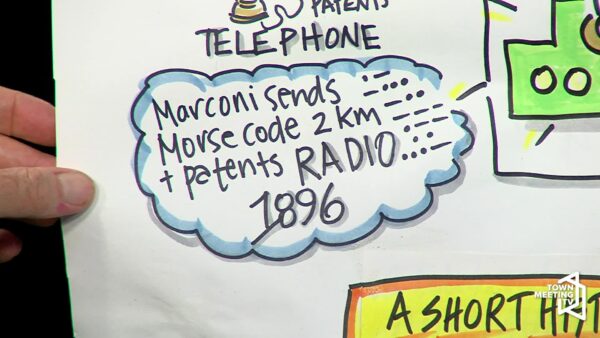 PATENTS
TELEPHONE
Marconi sends
Morse code 2 km
+ patents RADIO
1896
A SHORT HIST
TOWN
MEETING
TV